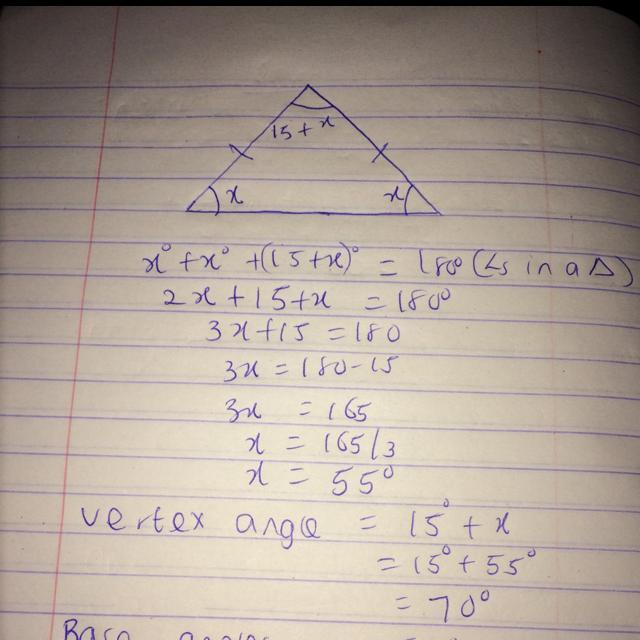 15 + x
x x
x° + x° + (15 + x)° = 180° (∠s in a Δ)
2x + 15 + x = 180°
3x + 15 = 180
3x = 180 - 15
3x = 165
x = 165/3
x = 55°
vertex angle = 15° + x
= 15° + 55°
= 70°
Base angles =